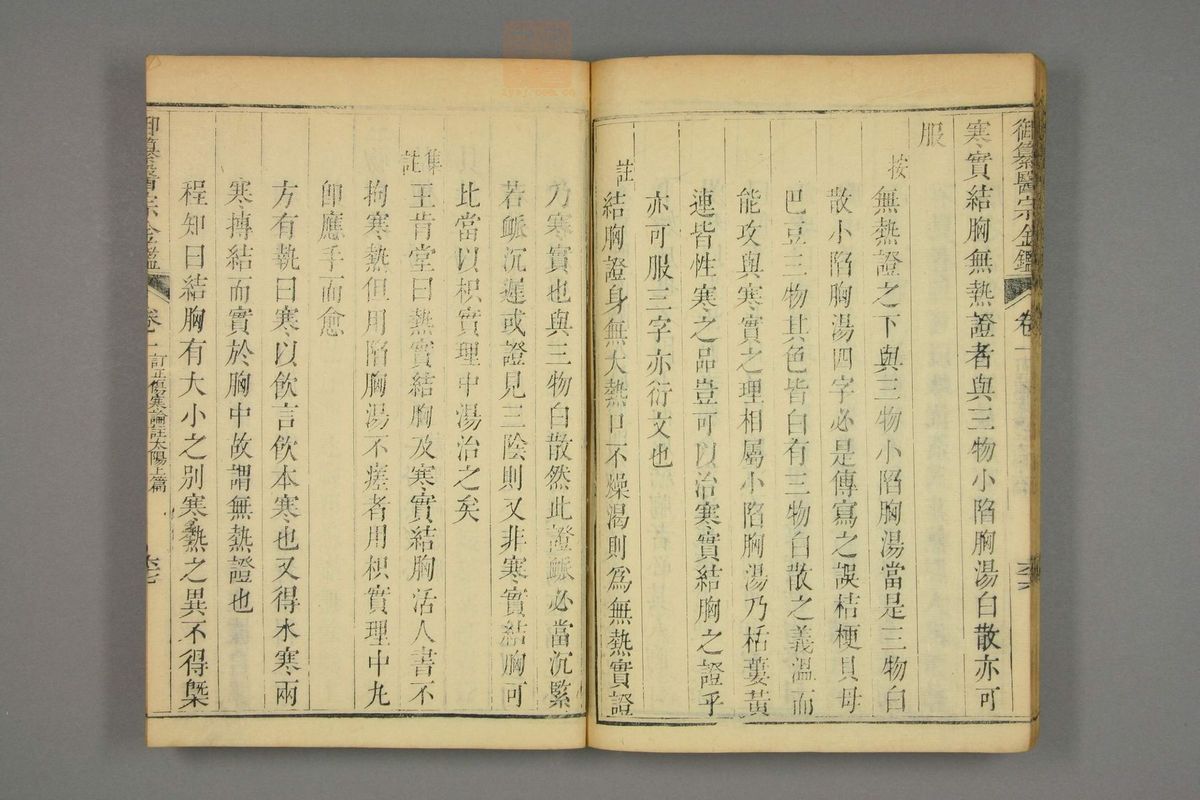 御纂醫宗金鑑 卷一
寒實結胸無熱證者與三物小陷胸湯白散亦可
服
按 無熱證之下與三物小陷胸湯當是三物白
散小陷胸湯四字必是傳寫之誤桔梗貝母
巴豆三物其色皆白有三物白散之義溫而
能攻與寒實之理相屬小陷胸湯乃栝蔞黃
連皆性寒之品豈可以治寒實結胸之證乎
亦可服三字亦衍文也
註 結胸證身無大熱口不燥渴則為無熱實證
乃寒實也與三物白散然此證脈必當沉緊
若脈沉遲或證見三陰則又非寒實結胸可
比當以枳實理中湯治之矣
集註 王肯堂曰熱實結胸及寒實結胸活人書不
拘寒熱但用陷胸湯不瘥者用枳實理中丸
即應手而愈
方有執曰寒以飲言飲本寒也又得水寒兩
寒搏結而實於胸中故謂無熱證也
程知曰結胸有大小之別寒熱之異不得槩
御纂醫宗金鑑 卷一 訂正傷寒論註太陽上篇